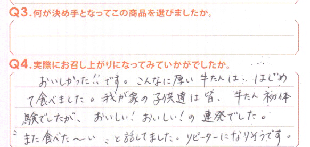 Q3.何が決め手となってこの商品を選びましたか。
Q4.実際にお召し上がりになってみていかがでしたか。
おいしかった!!です。こんなに厚い牛たんは‥はじめ
て食べました。我が家の子供達は皆、牛たん初体
験でしたが、おいしい!おいしい!の連発でした。
また食べた〜いと話してました。リピーターになりそうです。